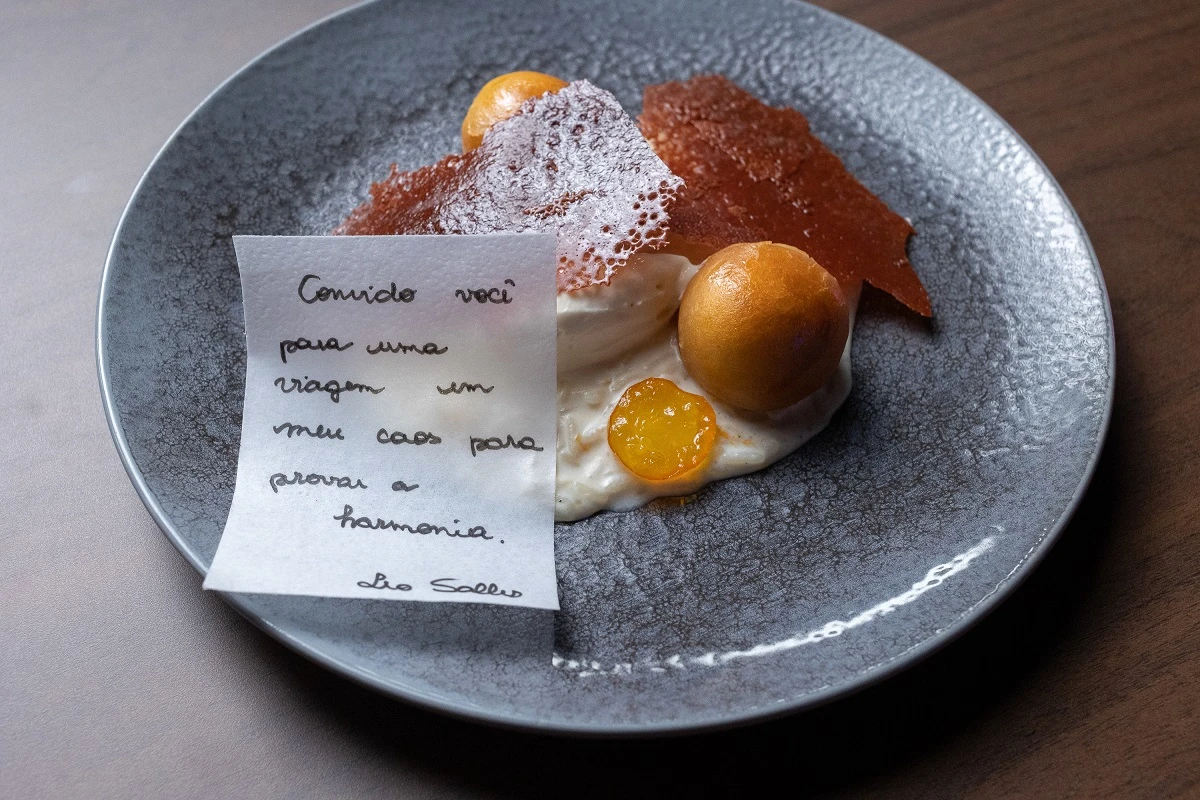 Convido você
para uma
viagem em
meu caos para
provar a
harmonia.
Léo Salles